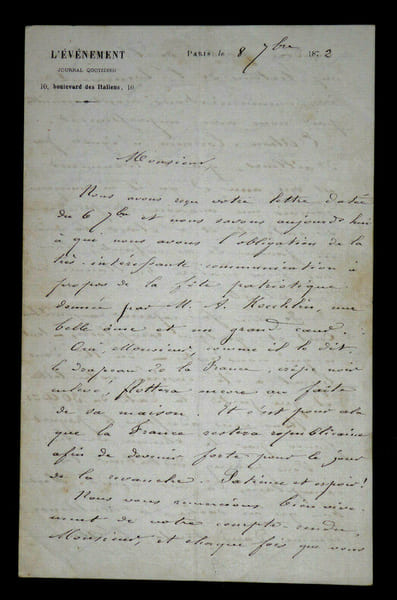 L'ÉVÉNEMENT
JOURNAL QUOTIDIEN
10, boulevard des Italiens, 10
PARIS, le 8 7bre 1872
Monsieur,
Nous avons reçu votre lettre datée
du 6 7bre et nous savons aujourd'hui
à qui nous avons l'obligation de la
très-intéressante communication à
propos de la fête patriotique
donnée par M. A. Koechlin, une
belle âme et un grand cœur.
Oui, Monsieur, comme il le dit
le drapeau de la France, crêpé noir
flottera encore au faîte
de sa maison. Et c'est pour cela
que la France restera républicaine
afin de devenir forte pour le jour
de la revanche. Patience et espoir!
Nous vous remercions bien vive-
ment de votre compte-rendu,
Monsieur, et chaque fois que vous